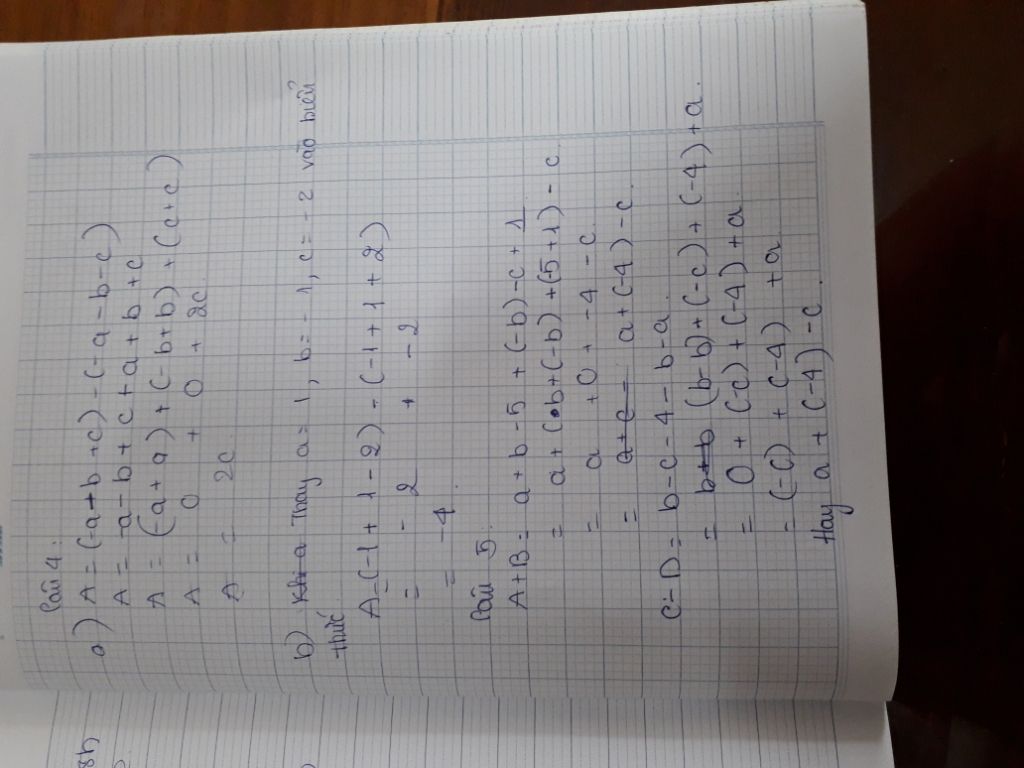 Câu 4:
a) A = (-a-b+c) - (-a-b-c)
A = -a-b+c+a+b+c
A = (-a+a) + (-b+b) + (c+c)
A = 0 + 0 + 2c
A = 2c
b) Khi a Thay a = 1, b = -1, c = -2 vào biểu
thức
A = (-1 + 1 - 2) - (-1 + 1 + 2)
= -2 + -2
= -4
Câu 5:
A+B = a + b - 5 + (-b) - c + 1
= a + (b + (-b) + (-5+1) - c
= a + 0 + -4 - c
= a+c = a + (-4) - c
C-D = b - c - 4 - b - a
= b+b (b-b) + (-c) + (-4) + a.
= 0 + (-c) + (-4) + a
= (-c) + (-4) + a
Hay a + (-4) - c
8h